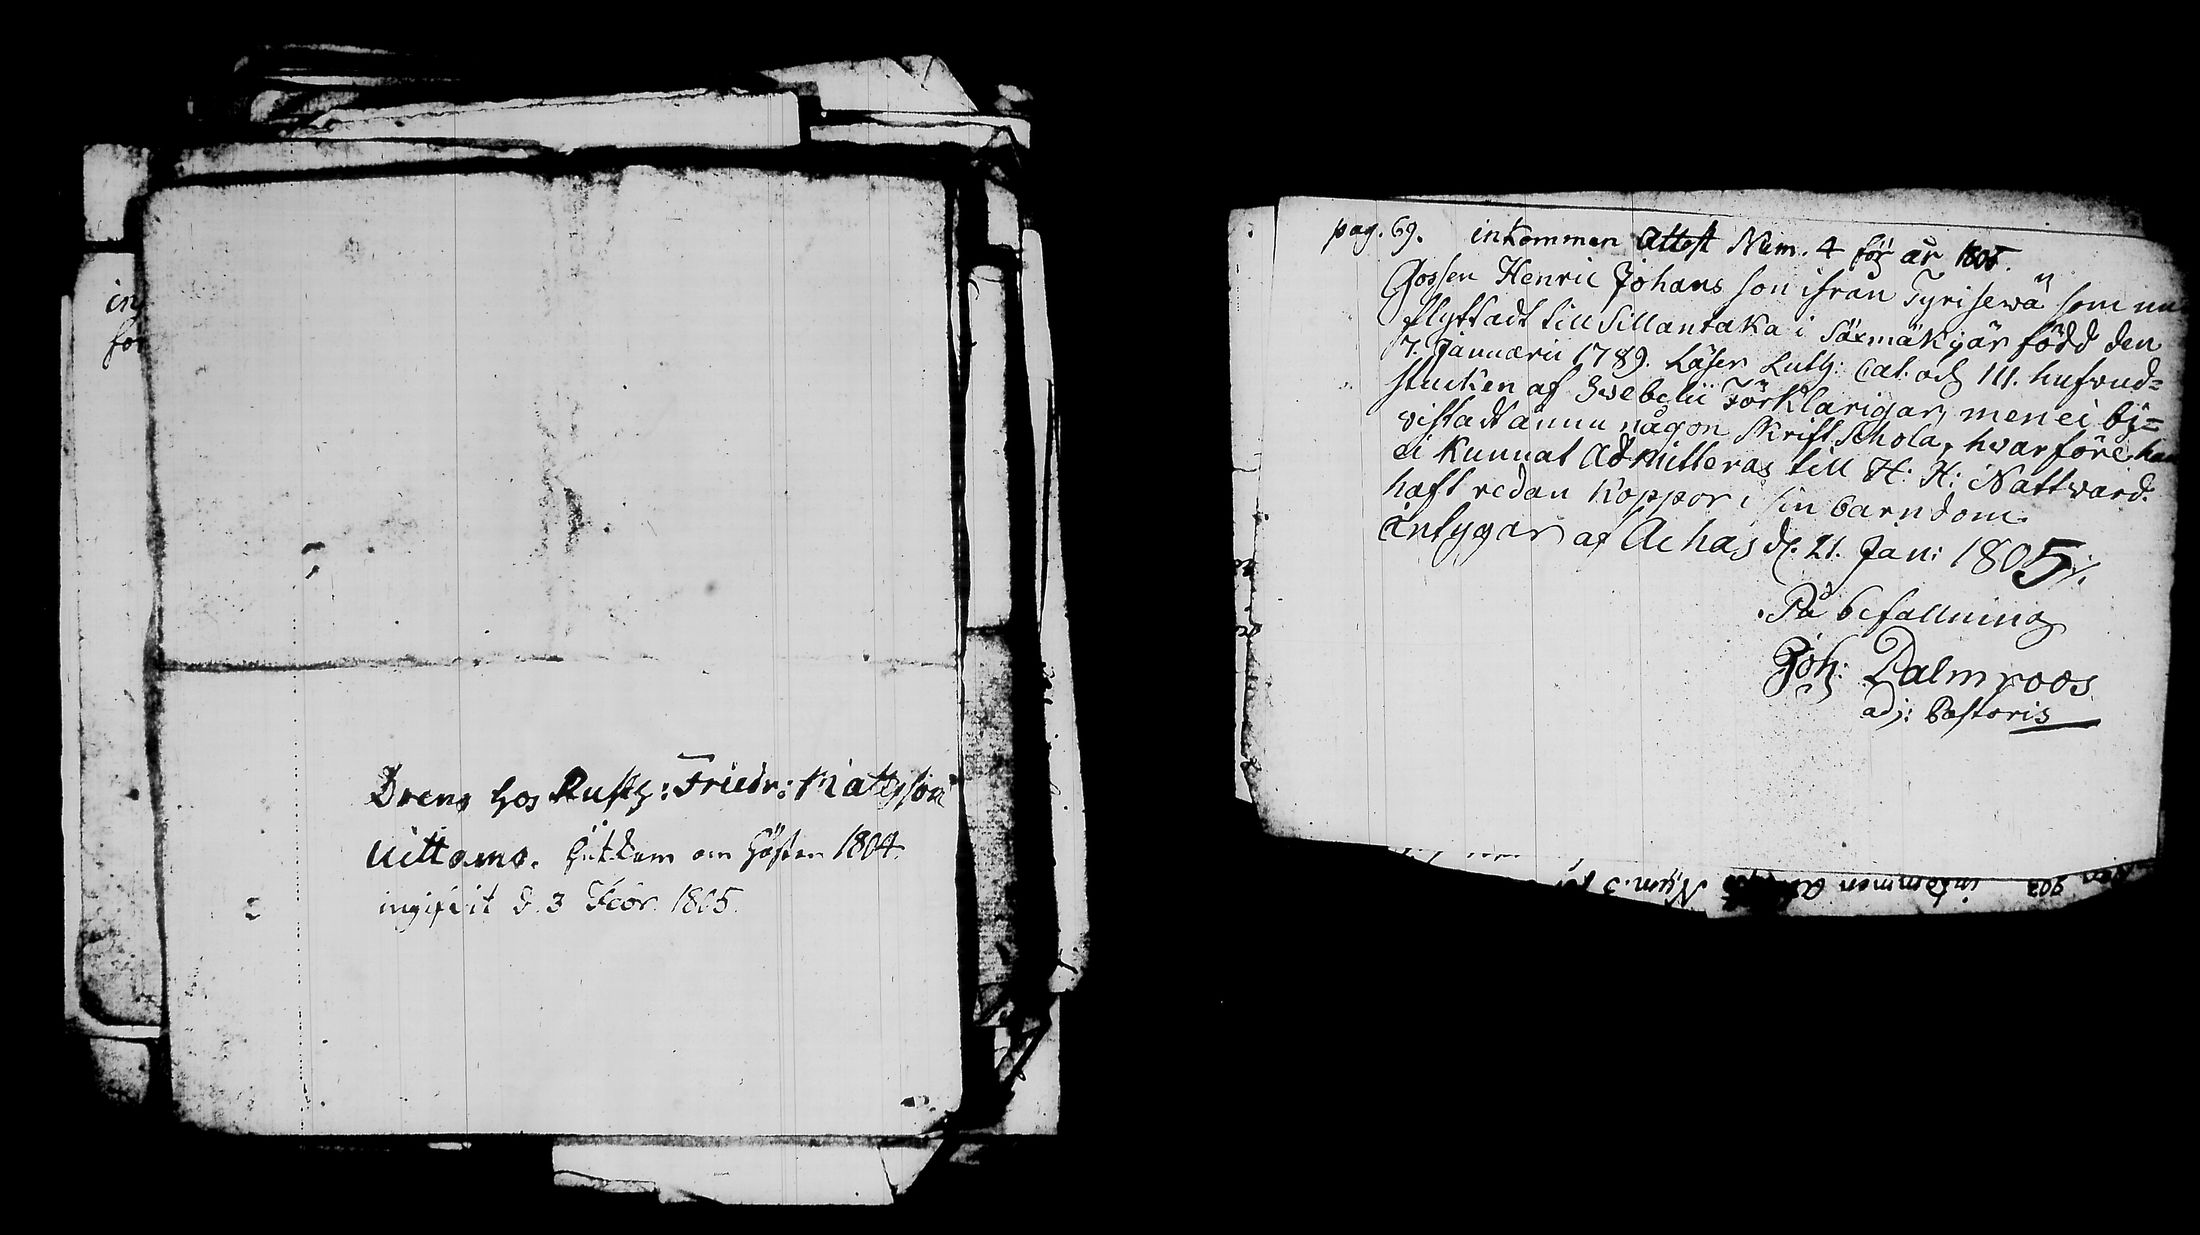 Dreng hos Rusth: Friedr: Mattsson
Uittamo. hitkom om hösten 1804.
ingifvit d. 3 Febr. 1805.
pag. 69. inkommen Attest Num. 4 för år 1805.
Gossen Henric Johansson ifrån Tyrisewä som nu
flyttadt till Sillantaka i Säxmäki är född den
7. Januarii 1789. Läser Luth: Cat. och III. hufvud=
stycken af Svebelii Förklarigar, men ei bi=
vistadt ännu någon Skrift Schola, hvarföre han
ei kunnat Admitteras till H: H: Nattvard.
haft redan Koppor i sin barndom.
intygar af Achas d. 21. Jan: 1805
På befallning
Joh: Palmroos
adj: Pastoris
inkommen Num. 3